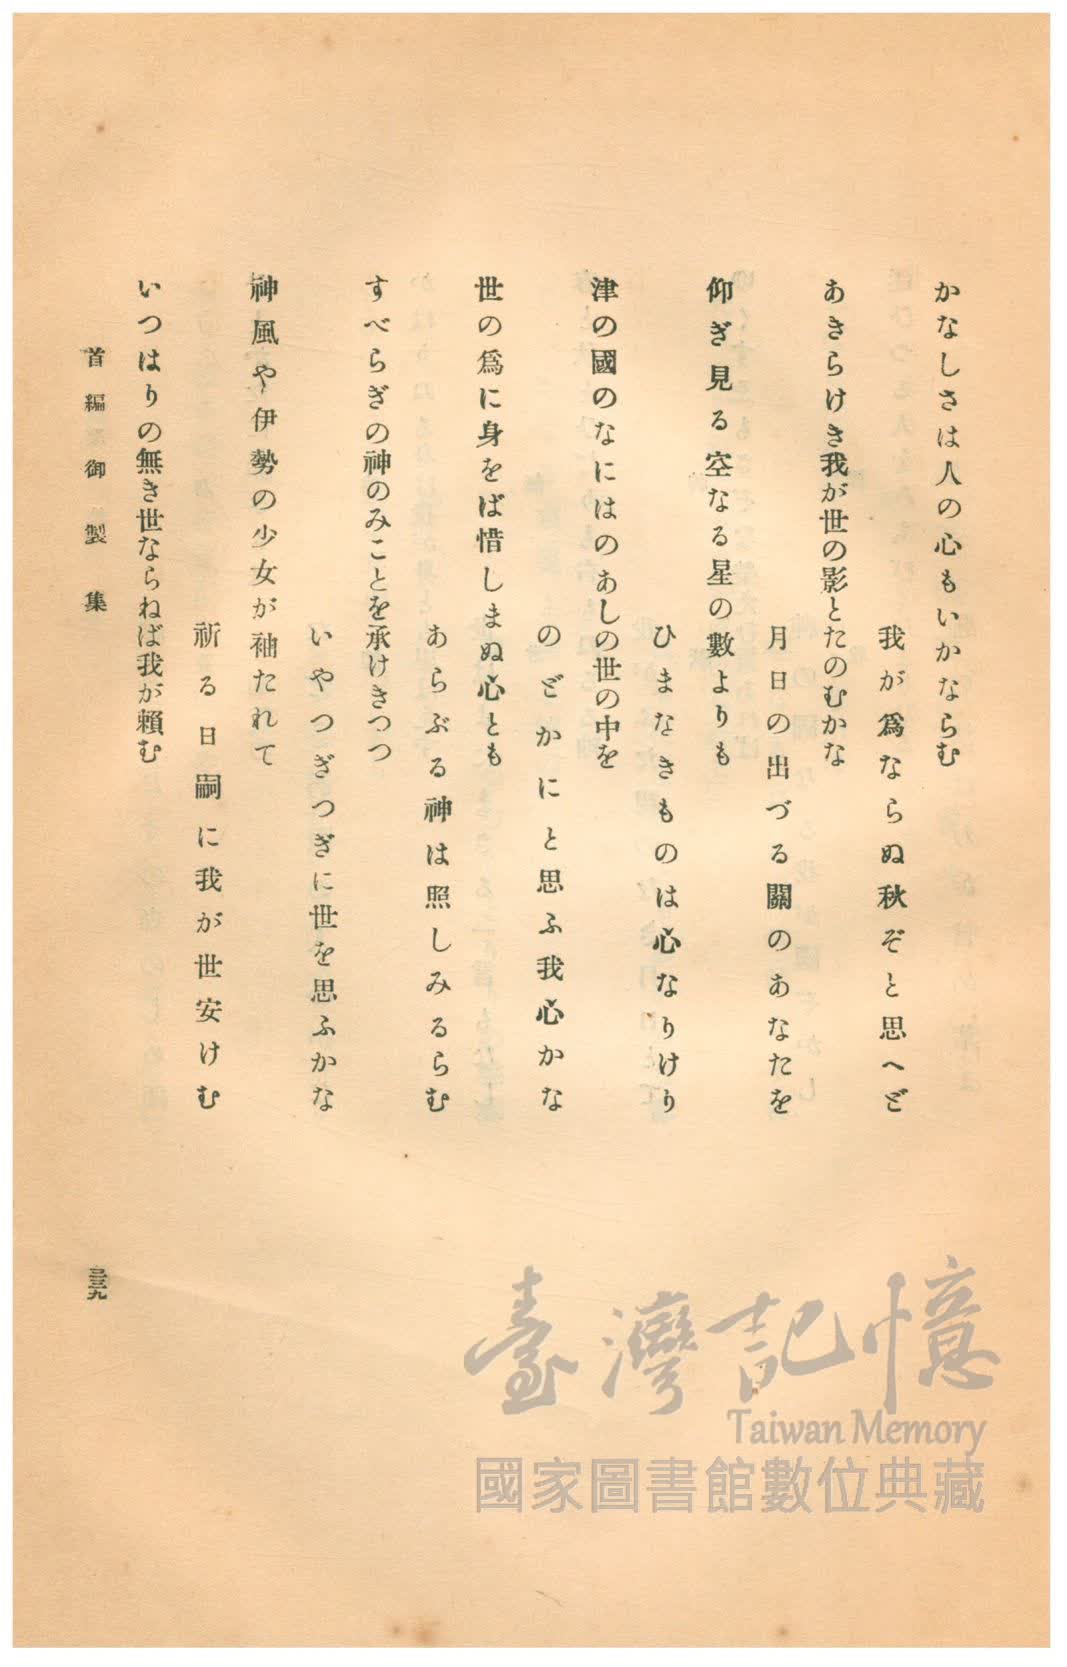 かなしさは人の心もいかならむ
我が爲ならぬ秋ぞと思へど
あきらけき我が世の影とたのむかな
月日の出づる關のあなたを
仰ぎ見る空なる星の數よりも
ひまなきものは心なりけり
津の國のなにはのあしの世の中を
のどかにと思ふ我心かな
世の爲に身をば惜しまぬ心とも
あらぶる神は照しみるらむ
すべらぎの神のみことを承けきつつ
いやつぎつぎに世を思ふかな
神風や伊勢の少女が袖たれて
祈る日嗣に我が世安けむ
いつはりの無き世ならねば我が賴む
首編 御製集
三三九
臺灣記憶
Taiwan Memory
國家圖書館數位典藏